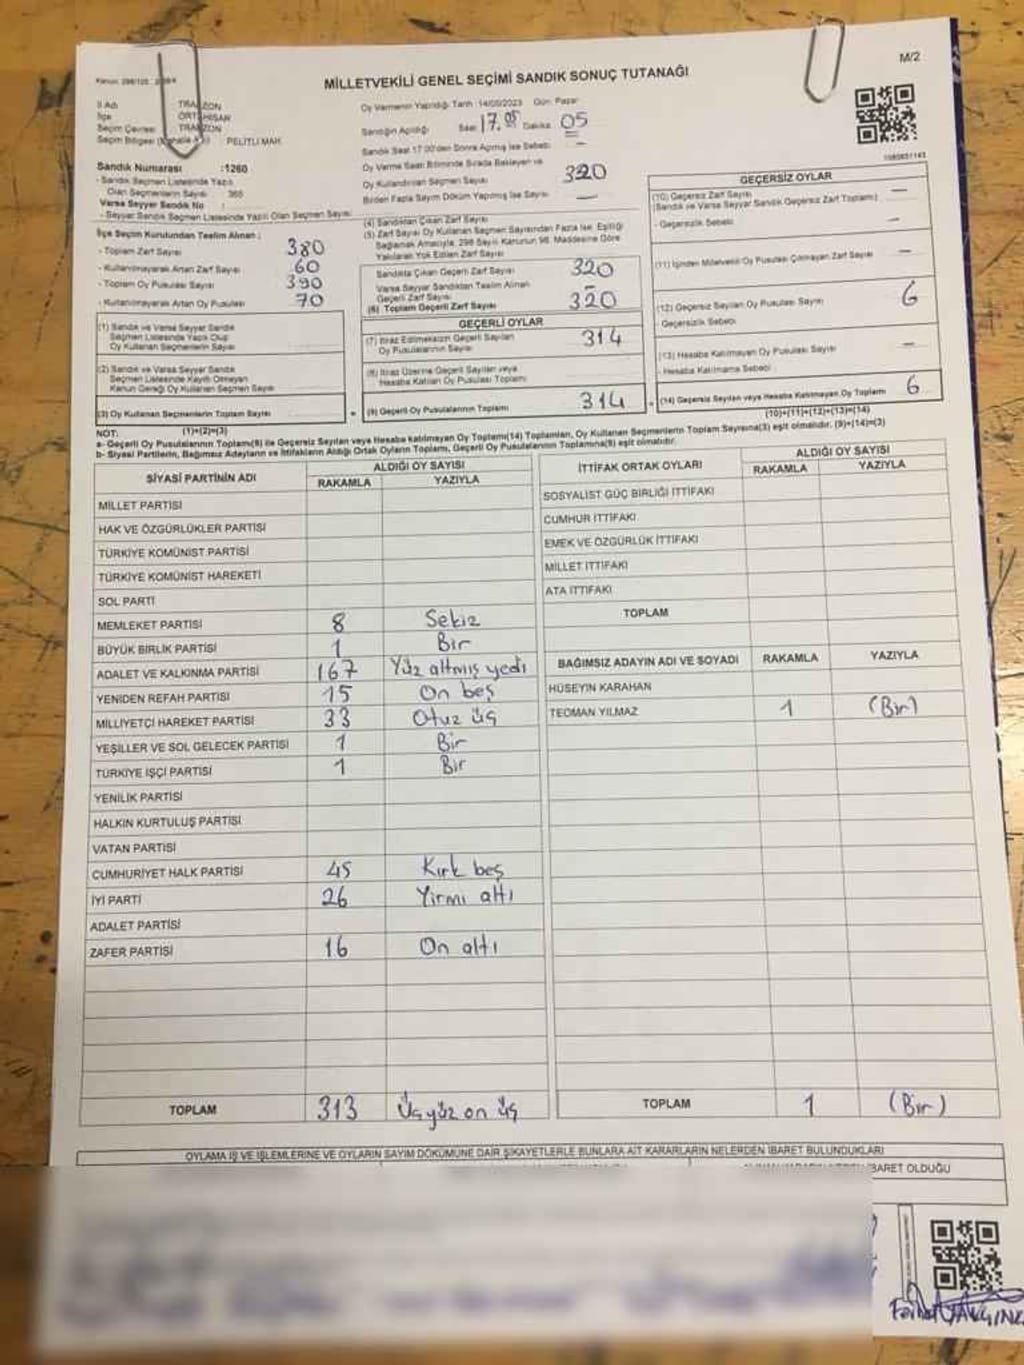 M/2
MİLLETVEKİLİ GENEL SEÇİMİ SANDIK SONUÇ TUTANAĞI
İl Adı
İlçe
Seçim Çevresi
PELİTLİ MAH.
Sandık Numarası :1260
- Sandık Seçmen Listesinde Yazılı
Olan Seçmenlerin Sayısı 365
Varsa Seyyar Sandık No :
- Seyyar Sandık Seçmen Listesinde Yazılı Olan Seçmen Sayısı
İlçe Seçim Kurulundan Teslim Alınan ;
- Toplam Zarf Sayısı 380
- Kullanılmayarak Artan Zarf Sayısı 60
- Toplam Oy Pusulası Sayısı 390
- Kullanılmayarak Artan Oy Pusulası 70
(1) Sandık ve Varsa Seyyar Sandık
Seçmen Listesinde Yazılı Olup
Oy Kullanan Seçmenlerin Sayısı
(2) Sandık ve Varsa Seyyar Sandık
Seçmen Listesinde Kayıtlı Olmayan
Kanun Gereği Oy Kullanan Seçmen Sayısı
(3) Oy Kullanan Seçmenlerin Toplam Sayısı
(1)+(2)=(3)
Oy Vermenin Yapıldığı Tarih :14/05/2023 Gün: Pazar
Sandığın Açıldığı Saat 17.05 Dakika 05
Sandık Saat 17:00'den Sonra Açılmış İse Sebebi —
Oy Verme Saati Bitiminde Sırada Bekleyen ve
Oy Kullandırılan Seçmen Sayısı 320
Birden Fazla Sayım Döküm Yapılmış İse Sayısı —
(4) Sandıktan Çıkan Zarf Sayısı
(5) Zarf Sayısı Oy Kullanan Seçmen Sayısından Fazla İse, Eşitliği
Sağlamak Amacıyla, 298 Sayılı Kanunun 98. Maddesine Göre
Yakılarak Yok Edilen Zarf Sayısı
Sandıkta Çıkan Geçerli Zarf Sayısı 320
Varsa Seyyar Sandıktan Teslim Alınan
Geçerli Zarf Sayısı —
(6) Toplam Geçerli Zarf Sayısı 320
GEÇERLİ OYLAR
(7) İtiraz Edilmeksizin Geçerli Sayılan
Oy Pusulalarının Sayısı 314
(8) İtiraz Üzerine Geçerli Sayılan veya
Hesaba Katılan Oy Pusulası Toplamı
(9) Geçerli Oy Pusulalarının Toplamı 314
GEÇERSİZ OYLAR
(10) Geçersiz Zarf Sayısı —
(Sandık ve Varsa Seyyar Sandık Geçersiz Zarf Toplamı)
- Geçersizlik Sebebi —
(11) İçinden Milletvekili Oy Pusulası Çıkmayan Zarf Sayısı —
(12) Geçersiz Sayılan Oy Pusulası Sayısı 6
Geçersizlik Sebebi
(13) Hesaba Katılmayan Oy Pusulası Sayısı —
- Hesaba Katılmama Sebebi
(14) Geçersiz Sayılan veya Hesaba Katılmayan Oy Toplamı 6
(10)+(11)+(12)+(13)=(14)
NOT:
a- Geçerli Oy Pusulalarının Toplamı(9) ile Geçersiz Sayılan veya Hesaba katılmayan Oy Toplamı(14) Toplamları, Oy Kullanan Seçmenlerin Toplam Sayısına(3) eşit olmalıdır. (9)+(14)=(3)
b- Siyasi Partilerin, Bağımsız Adayların ve İttifakların Aldığı Ortak Oyların Toplamı, Geçerli Oy Pusulalarının Toplamına(9) eşit olmalıdır.
SİYASİ PARTİNİN ADI ALDIĞI OY SAYISI
RAKAMLA YAZIYLA
MİLLET PARTİSİ
HAK VE ÖZGÜRLÜKLER PARTİSİ
TÜRKİYE KOMÜNİST PARTİSİ
TÜRKİYE KOMÜNİST HAREKETİ
SOL PARTİ
MEMLEKET PARTİSİ 8 Sekiz
BÜYÜK BİRLİK PARTİSİ 1 Bir
ADALET VE KALKINMA PARTİSİ 167 Yüz altmış yedi
YENİDEN REFAH PARTİSİ 15 On beş
MİLLİYETÇİ HAREKET PARTİSİ 33 Otuz üç
YEŞİLLER VE SOL GELECEK PARTİSİ 1 Bir
TÜRKİYE İŞÇİ PARTİSİ 1 Bir
YENİLİK PARTİSİ
HALKIN KURTULUŞ PARTİSİ
VATAN PARTİSİ
CUMHURİYET HALK PARTİSİ 45 Kırk beş
İYİ PARTİ 26 Yirmi altı
ADALET PARTİSİ
ZAFER PARTİSİ 16 On altı
TOPLAM 313 Üçyüz on üç
İTTİFAK ORTAK OYLARI ALDIĞI OY SAYISI
RAKAMLA YAZIYLA
SOSYALİST GÜÇ BİRLİĞİ İTTİFAKI
CUMHUR İTTİFAKI
EMEK VE ÖZGÜRLÜK İTTİFAKI
MİLLET İTTİFAKI
ATA İTTİFAKI
TOPLAM
BAĞIMSIZ ADAYIN ADI VE SOYADI RAKAMLA YAZIYLA
HÜSEYİN KARAHAN
TEOMAN YILMAZ 1 (Bir)
TOPLAM 1 (Bir)
OYLAMA İŞ VE İŞLEMLERİNE VE OYLARIN SAYIM DÖKÜMÜNE DAİR ŞİKAYETLERLE BUNLARA AİT KARARLARIN NELERDEN İBARET BULUNDUKLARI
BARET OLDUĞU